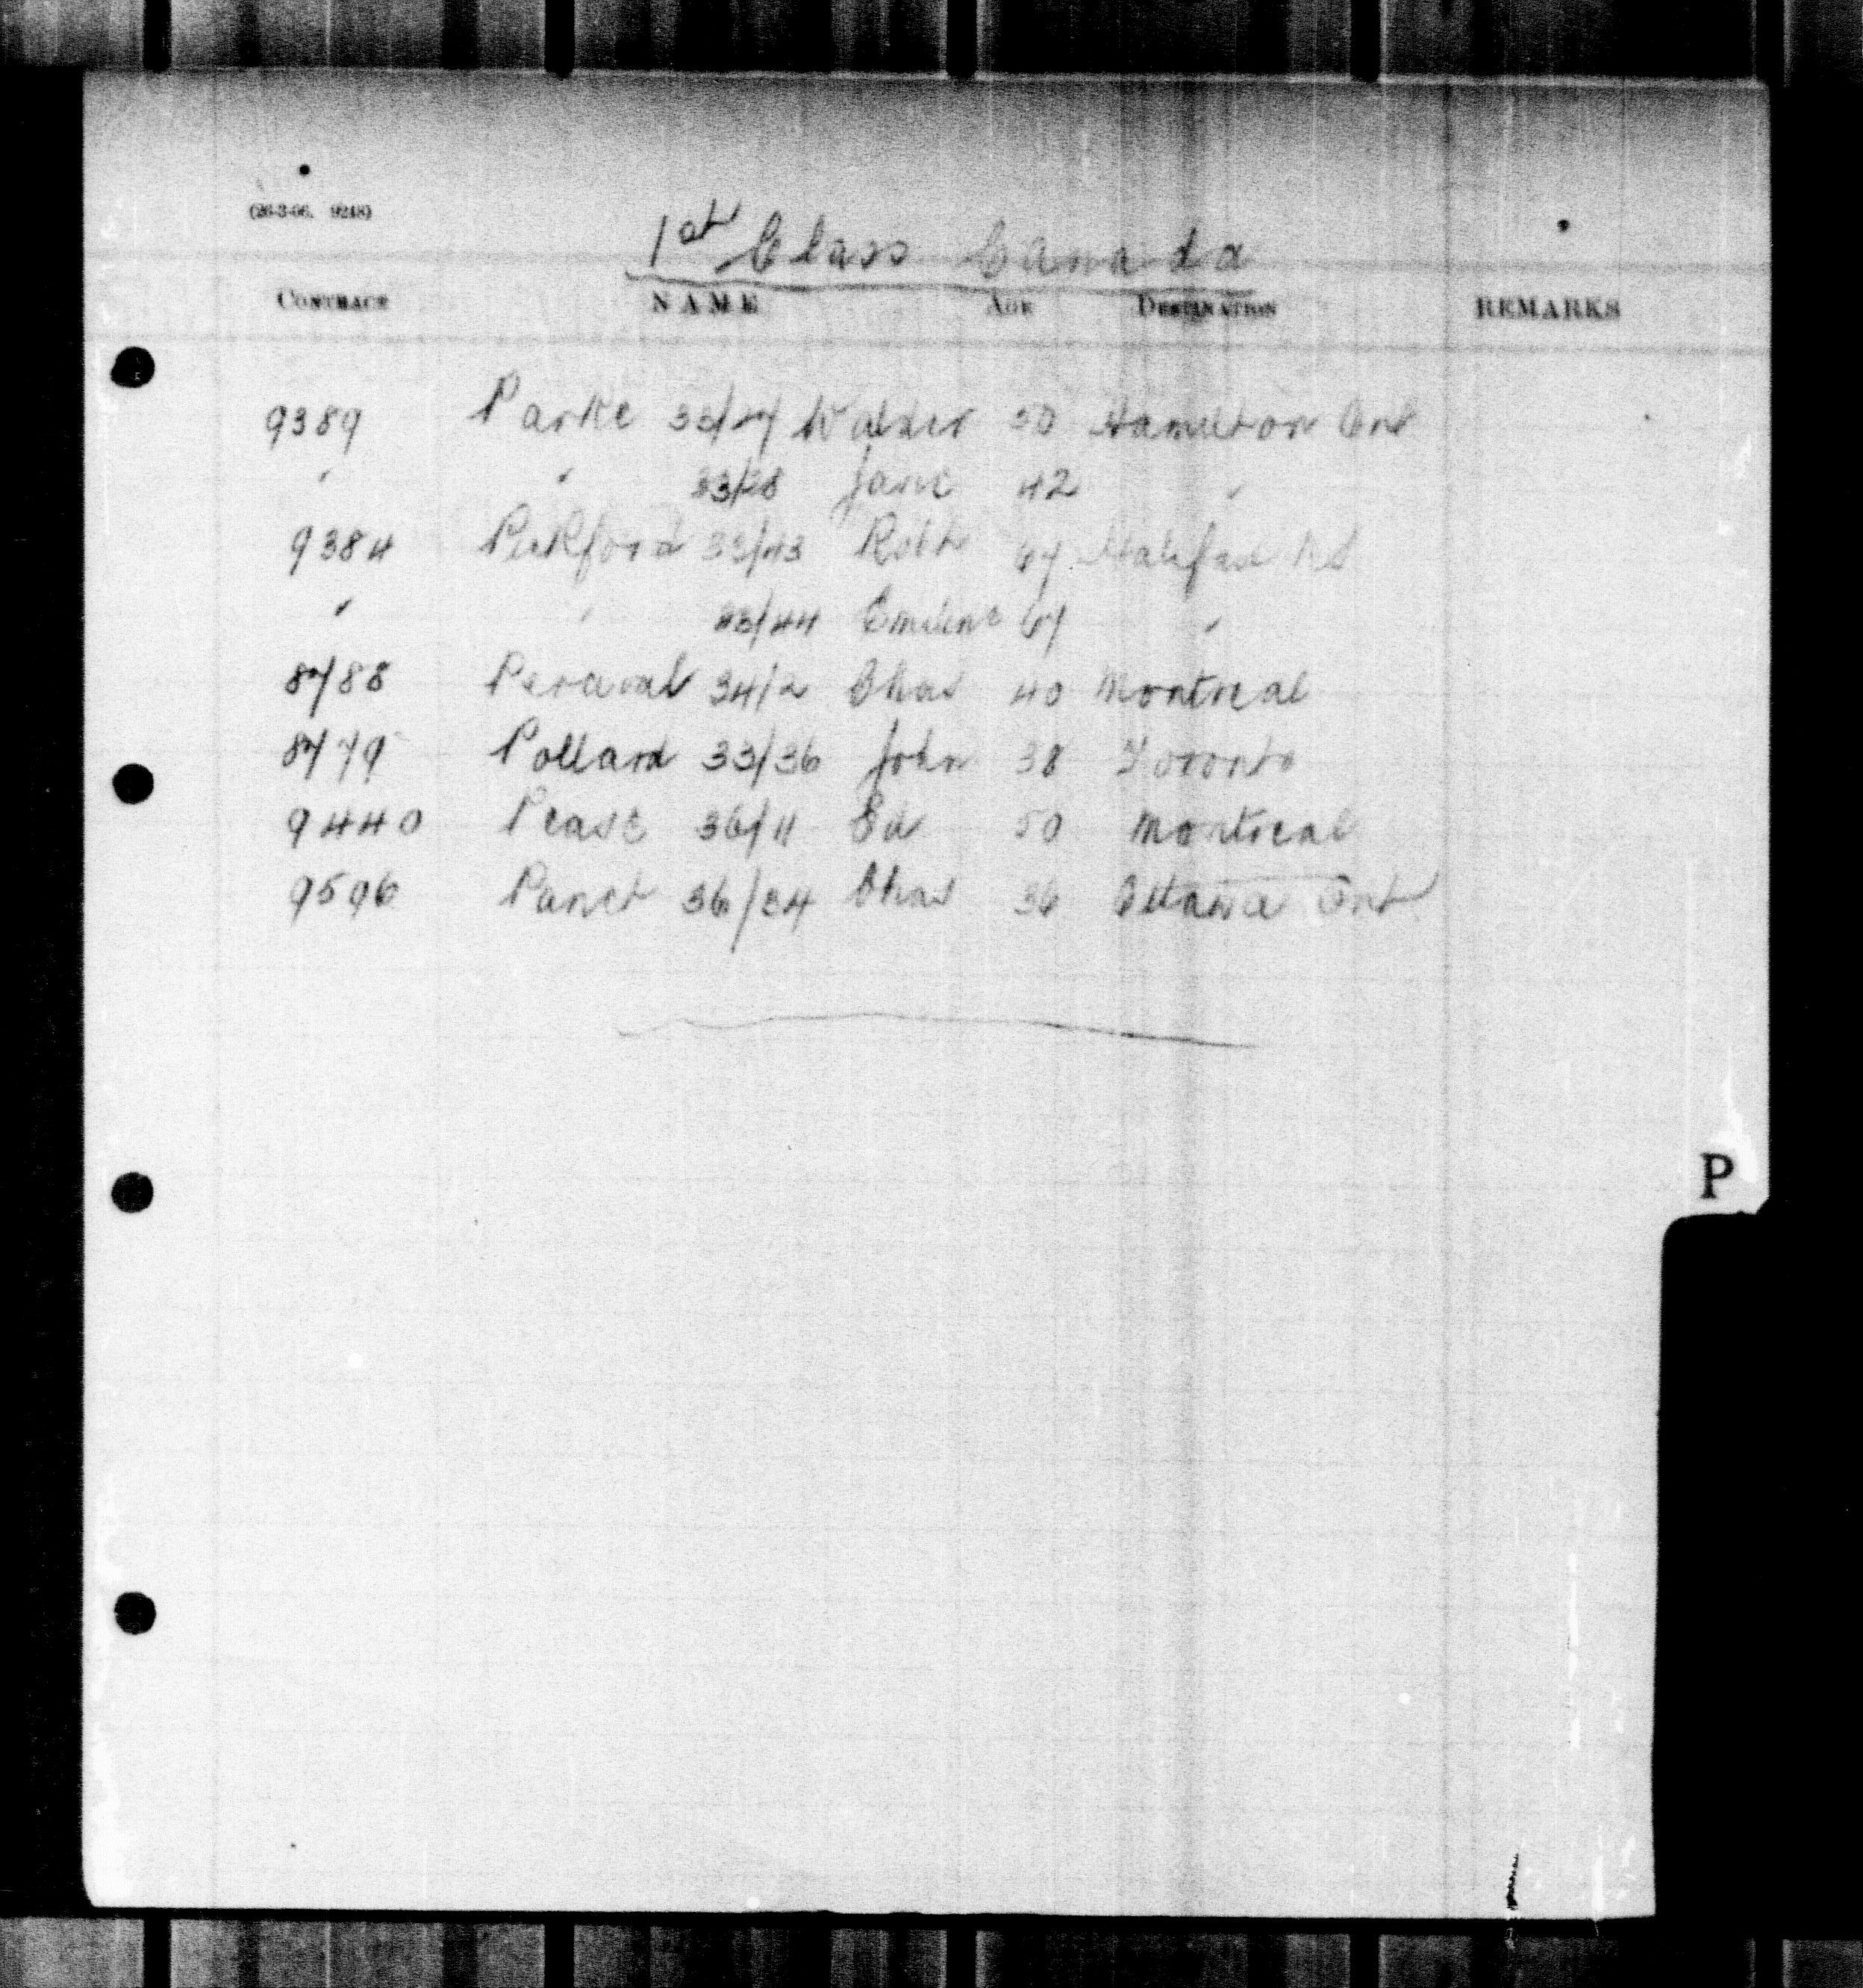 (26-3-06. 9248)
1st Class Canada
CONTRACT NAME AGE DESTINATION REMARKS
9389 Parke 33/27 Walter 50 Hamilton Ont
" " 33/28 Jane 42 "
9384 Pickford 33/43 Robt 67 Halifax NS
" " 33/44 Emiline 67 "
8788 Perceval 34/2 Chas 40 Montreal
8779 Pollard 33/36 John 38 Toronto
9440 Pease 36/11 Ed 50 Montreal
9596 Panet 36/34 Chas 36 Ottawa Ont
P